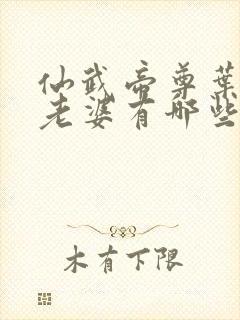 仙武帝尊葉
老婆有哪些
木有下限